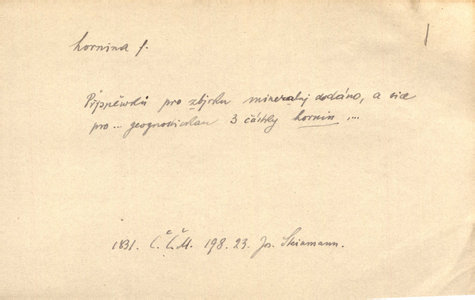 hornina f.
Příspěvků pro zbjrku mineralnj dodáno, a sice
pro... geognostickau 3 částky hornin ...
1831. Č.Č.M. 198. 23. Jos. Steinmann.